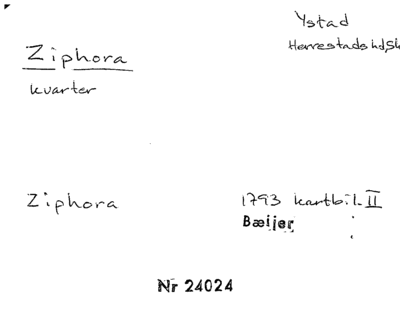 Ystad
Herrestads hd, Sk
Ziphora
kvarter
Ziphora
1793 kartbil. II
Bæijer
Nr 24024